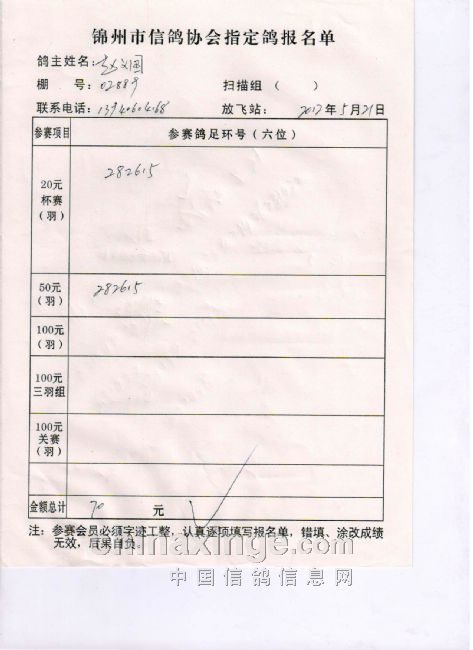 锦州市信鸽协会指定鸽报名单
鸽主姓名:赵文国
棚 号:02889 扫描组( )
联系电话:13940604168 放飞站: 2012年5月21日
参赛项目 参赛鸽足环号(六位)
20元
杯赛
(羽)
282615
50元
(羽)
282615
100元
(羽)
100元
三羽组
100元
关赛
(羽)
金额总计 70 元
注:参赛会员必须字迹工整,认真逐项填写报名单,错填、涂改成绩
无效,后果自负。
chinaxinge.com
中国信鸽信息网